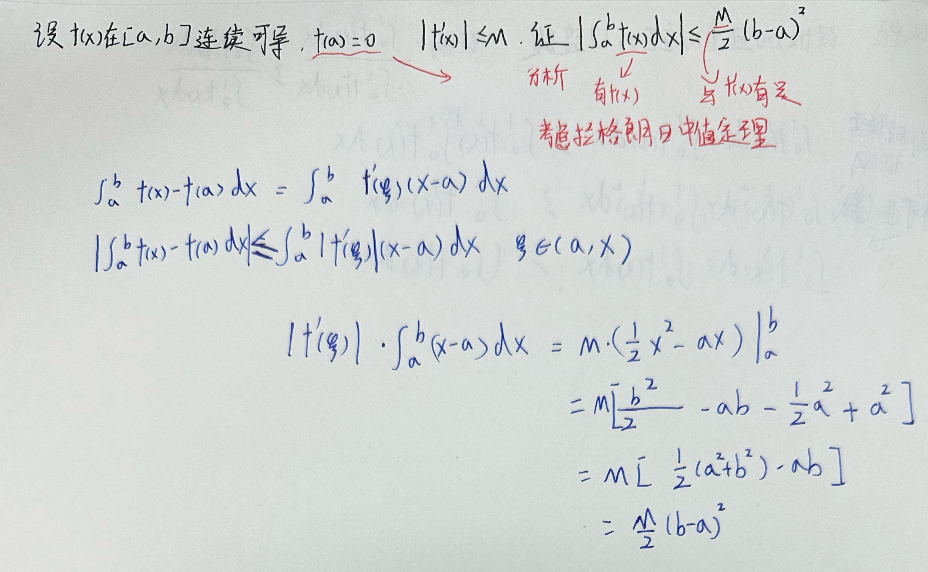 设f(x)在[a,b]连续可导,f(a)=0 |f'(x)|≤M. 证 |∫_a^b f(x)dx|≤M/2 (b-a)²
分析 有f(x) 与f'(x)有关
考虑拉格朗日中值定理
∫_a^b f(x)-f(a) dx = ∫_a^b f'(ξ)(x-a) dx
|∫_a^b f(x)-f(a) dx|≤∫_a^b |f'(ξ)|(x-a) dx ξ∈(a,x)
|f'(ξ)|·∫_a^b (x-a) dx = M·(1/2 x²-ax)|_a^b
= M[b²/2 - ab - 1/2 a² + a²]
= M[1/2(a²+b²)-ab]
= M/2 (b-a)²